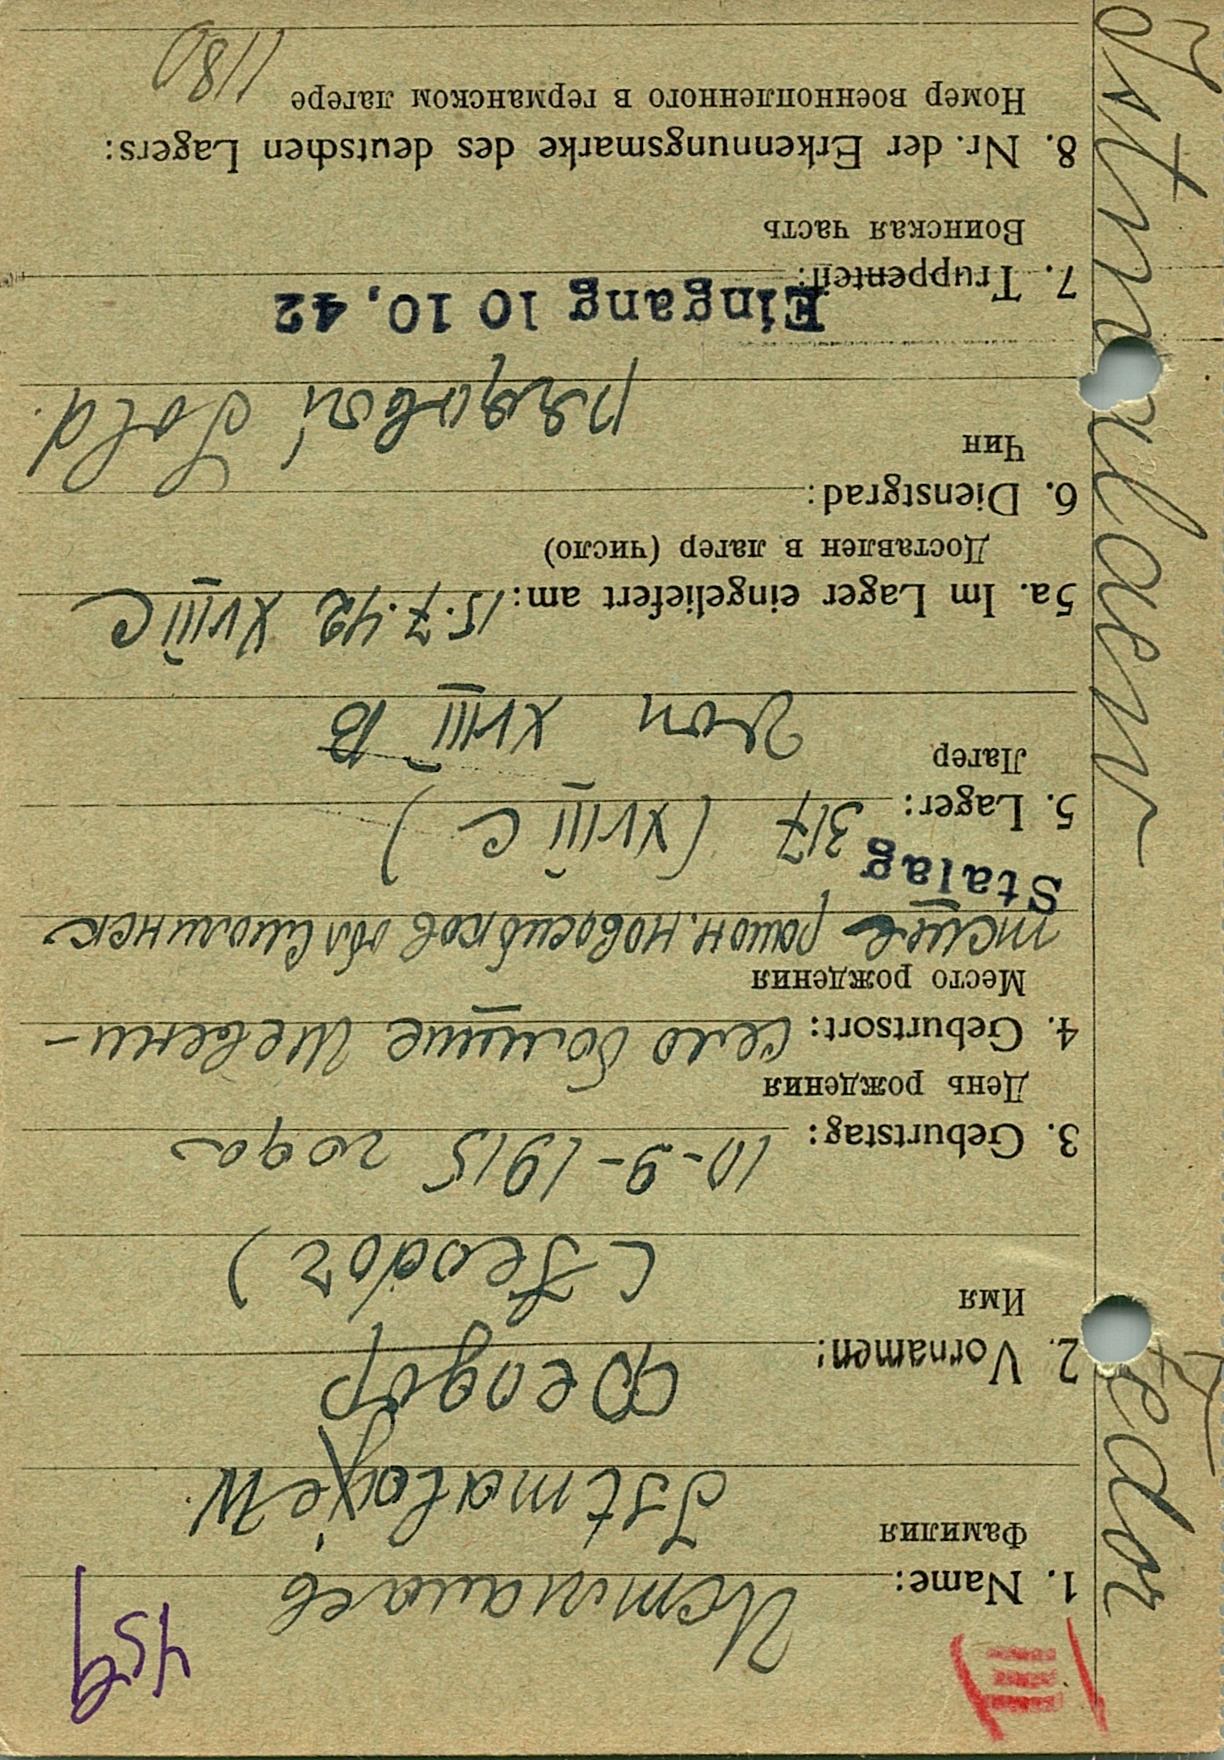 (III)
459
1. Name: Истмалаев
Фамилия
Istmalajew
2. Vornamen: Феодор
Имя
(Feodor)
3. Geburtstag: 10-9-1915 года
День рождения
4. Geburtsort: село большие
Место рождения
район. новосибков обл
Stalag
5. Lager: 317 (XVIII C)
Лагер
von XVIII B
5a. Im Lager eingeliefert am: 15.7.42 XVIII C
Доставлен в лагер (число)
6. Dienstgrad:
Чин
рядовой Sold.
Eingang 10 10. 42
7. Truppenteil:
Воинская часть
8. Nr. der Erkennungsmarke des deutschen Lagers:
Номер военнопленного в германском лагере
1180
Istmalaew
Fedor